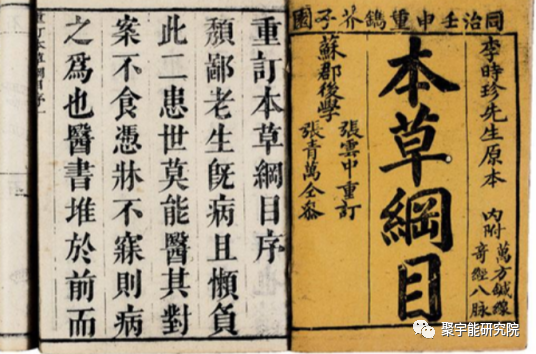 同治壬申重鐫芥子園
李時珍先生原本
內附
萬方鍼線
奇經八脉
本草綱目
蘇郡後學
張雲中重訂
張青萬全參
重訂本草綱目序
頹鄙老生旣病且懶負
此二患世莫能醫其對
案不食憑牀不寐則病
之爲也醫書堆於前而
重訂本草綱目序
聚宇能研究院